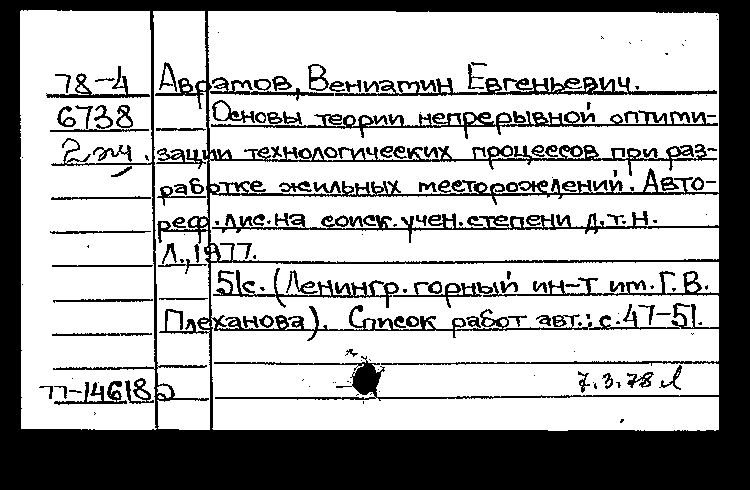 78-4 Авратов, Вениамин Евгеньевич.
6738 Основы теории непрерывной оптими-
2 эк. зации технологических процессов при раз-
работке жильных месторождений. Авто-
реф. дис. на соиск. учен. степени д.т.н.
Л., 1977.
51с. (Ленингр. горный ин-т им. Г.В.
Плеханова). Список работ авт.: с. 47-51.
77-14618
7.3.78